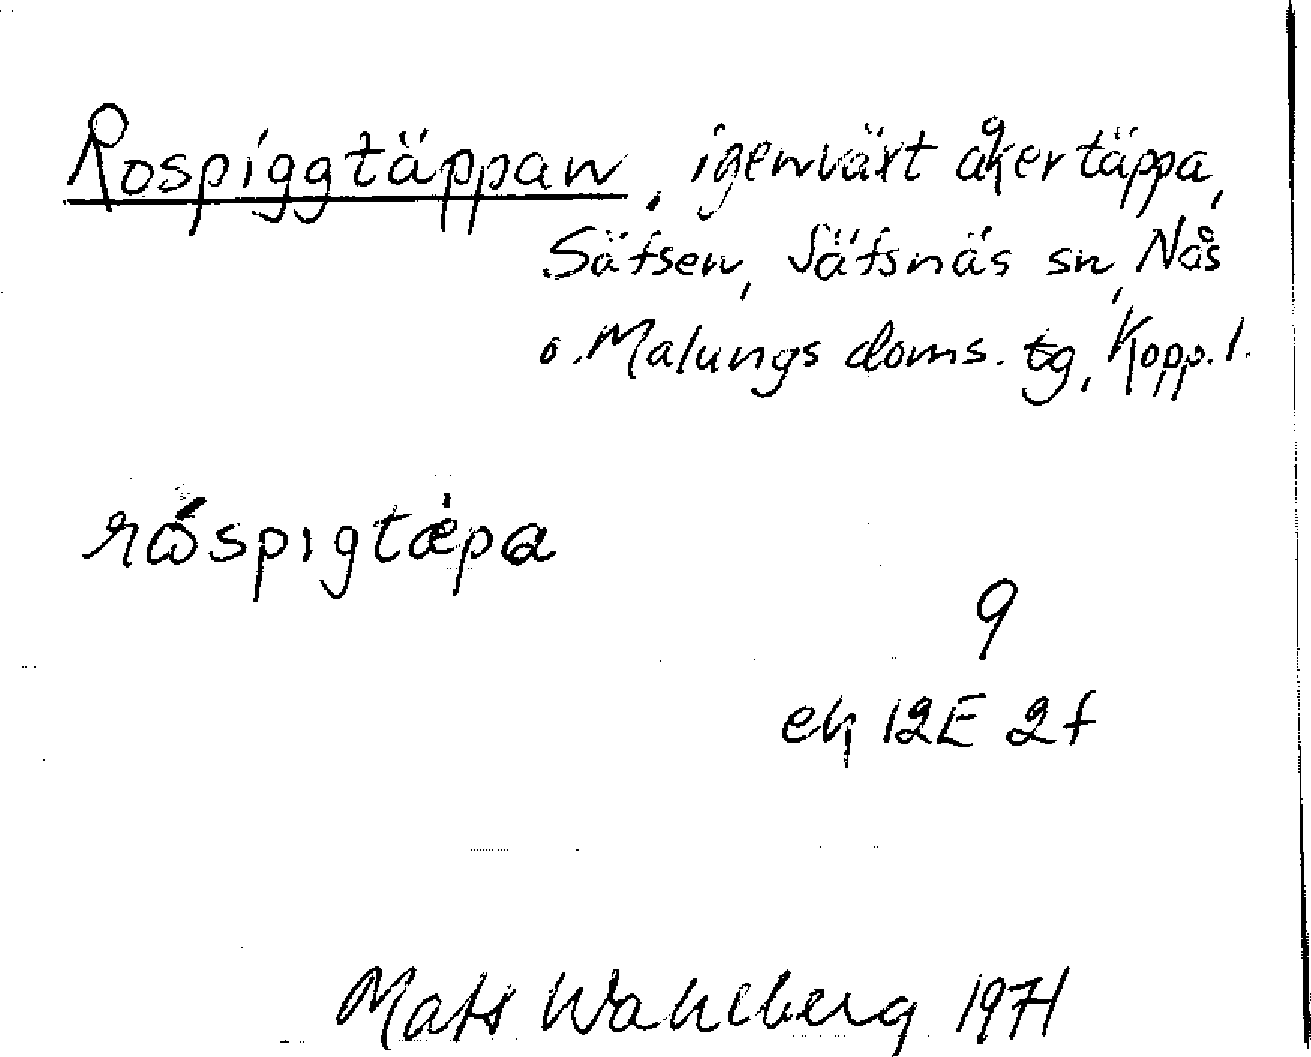 Rospiggtäppan, igenväxt åkertäppa,
Säfsen, Säfsnäs sn, Nås
o. Malungs doms. tg, Kopp. l.
rɷ́spıgtæ̀pa
9
ek 12E 2f
Mats Wahlberg 1971